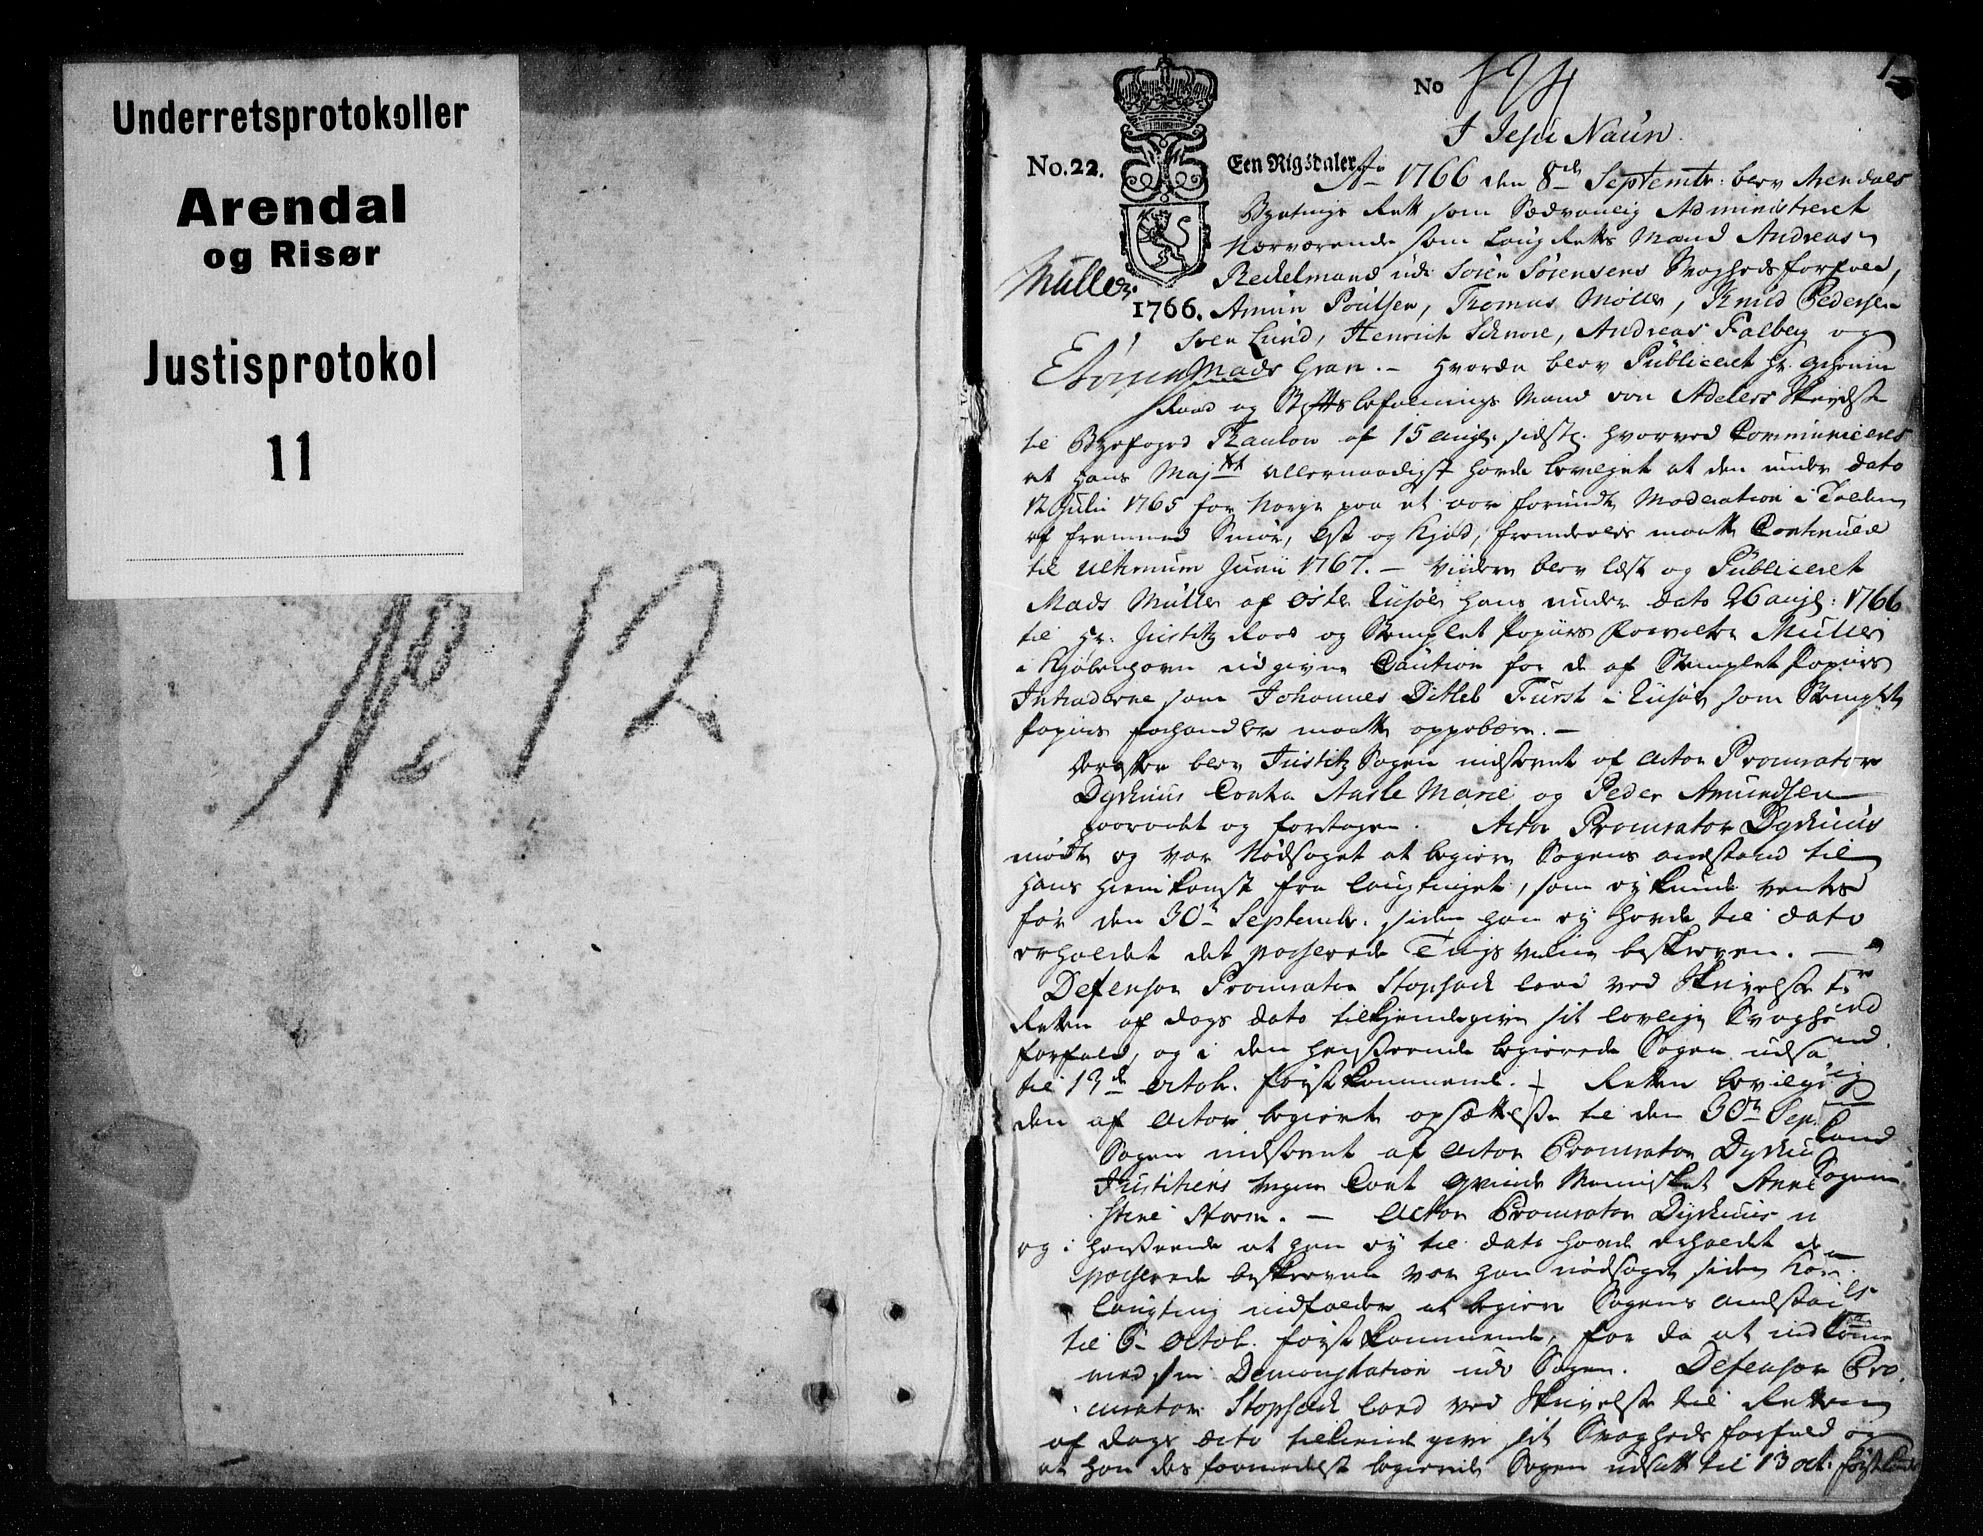 Underretsprotokoller
Arendal
og Risør
Justisprotokol
11
No 12
1
No
I Jesu Naun
No. 22.
Een Rigsdaler
Ao 1766 den 8de Septembr: blev Arendals
Byetings Rett som Sædvanlig Administreret
Nærværende som Laug Retts Mænd Andreas
Reckelmand udi Sören Sörensens Svagheds forfald,
Müller.
1766.
Amun Poulsen, Thomas Möller, Knud Pedersen
Sven Lund, Henrich Schnore, Andreas Falberg og
Mads Gran. - Hvorda blev Publiceret Hr.
Raad og Stiftsbefalnings Mand von Adelers Skrivelse
til Byefoged af 15 aug: sidstl: hvorved Communiceres
at Hans Majtt allernaadigst havde bevilget at den under dato
12 Julii 1765 for Norge paa et aar forundte Moderation i Tolden
af fremmed Smör, Ost og Kjød, fremdeles maatte Continuere
til ultimum Junii 1767. - Videre blev læst og Publiceret
Mads Müller af Öster Riisöer hans under dato 26 aug: 1766
til Hr. Justitz Raad og Stemplet Papiirs Forvalter Müller
i Kjöbenhavn udgivne Caution for de af Stemplet Papiirs
Intraderne som Johannes Ditleb Furst i Riisöer som Stemplet
Papiirs forhandler maatte oppebære. -
Derefter blev Justitz Sagen indstevnt af Actor Procurator
Dyrhuus Contra Aasle Marie og Peder Amundsen
paaraabt og foretagen. Actor Procurator Dyrhuus
mödte og var Nödsaget at begiere Sagens anstand til
hans hiemkomst fra Laugtinget, som ey kunde ventes
för den 30te Septembr. siden han ey havde til dato
erholdet det passerede Tings Vidne beskreven. -
Defensor Procurator Stophach lod ved Skrivelse til
Retten af dags dato tilkjendegive sit lovlige Svagheds
forfald, og i den henseende begierede Sagen udsat
til 13de Octob. förstkommende. - Retten bevilgede
den af Actor begierte opsættelse til den 30te Sep
Sagen indstevnt af Actor Procurator Dyrhuus
Justitiens Vegne Cont Qvinde Mennisket Anne
Stine Storm. - Actor Procurator Dyrhuus
og i henseende at han ey til dato havde erholdet de
passerede beskrevne var han nödsaget siden
Laugting indfalder at begiere Sagens anstand
til 6te Octob. förstkommende, for da at indkomme
med sin Demonstration udi Sagen. Defensor Pro
curator Stophach lod ved Skrivelse til Retten
af dags dato tilkiende give sit Svagheds forfald og
at han des formedelst begierede Sagen udsatt til 13 oct: först